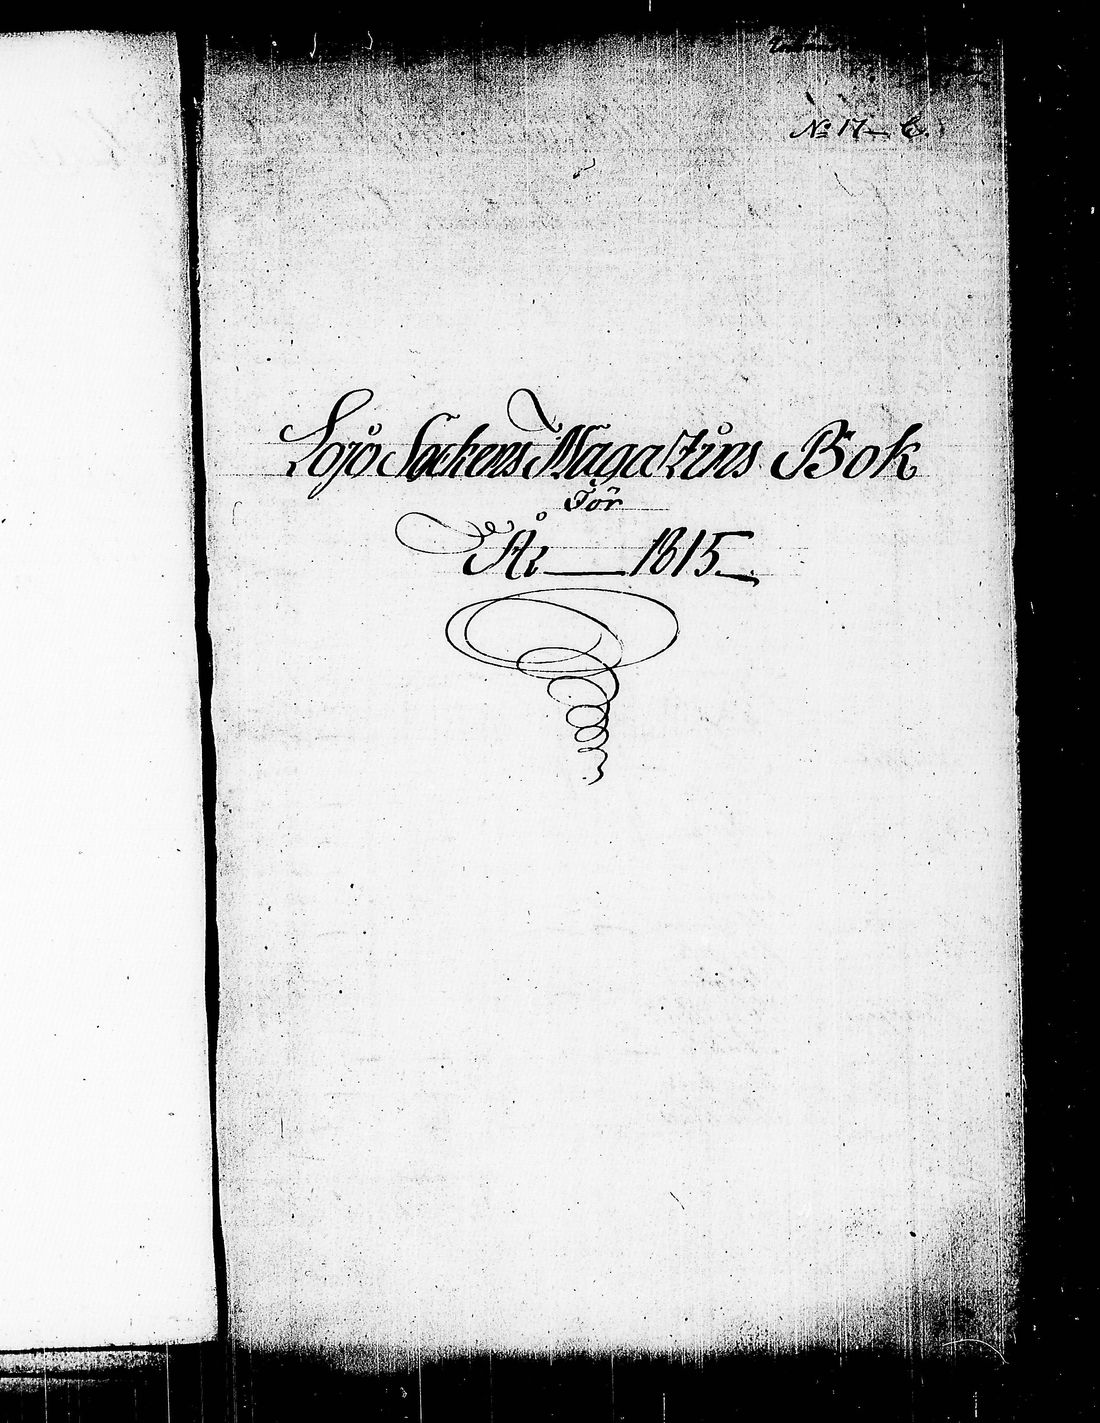 No 17 — C.
Lojo Sockens Magatzins Bok
För
År — 1815 —